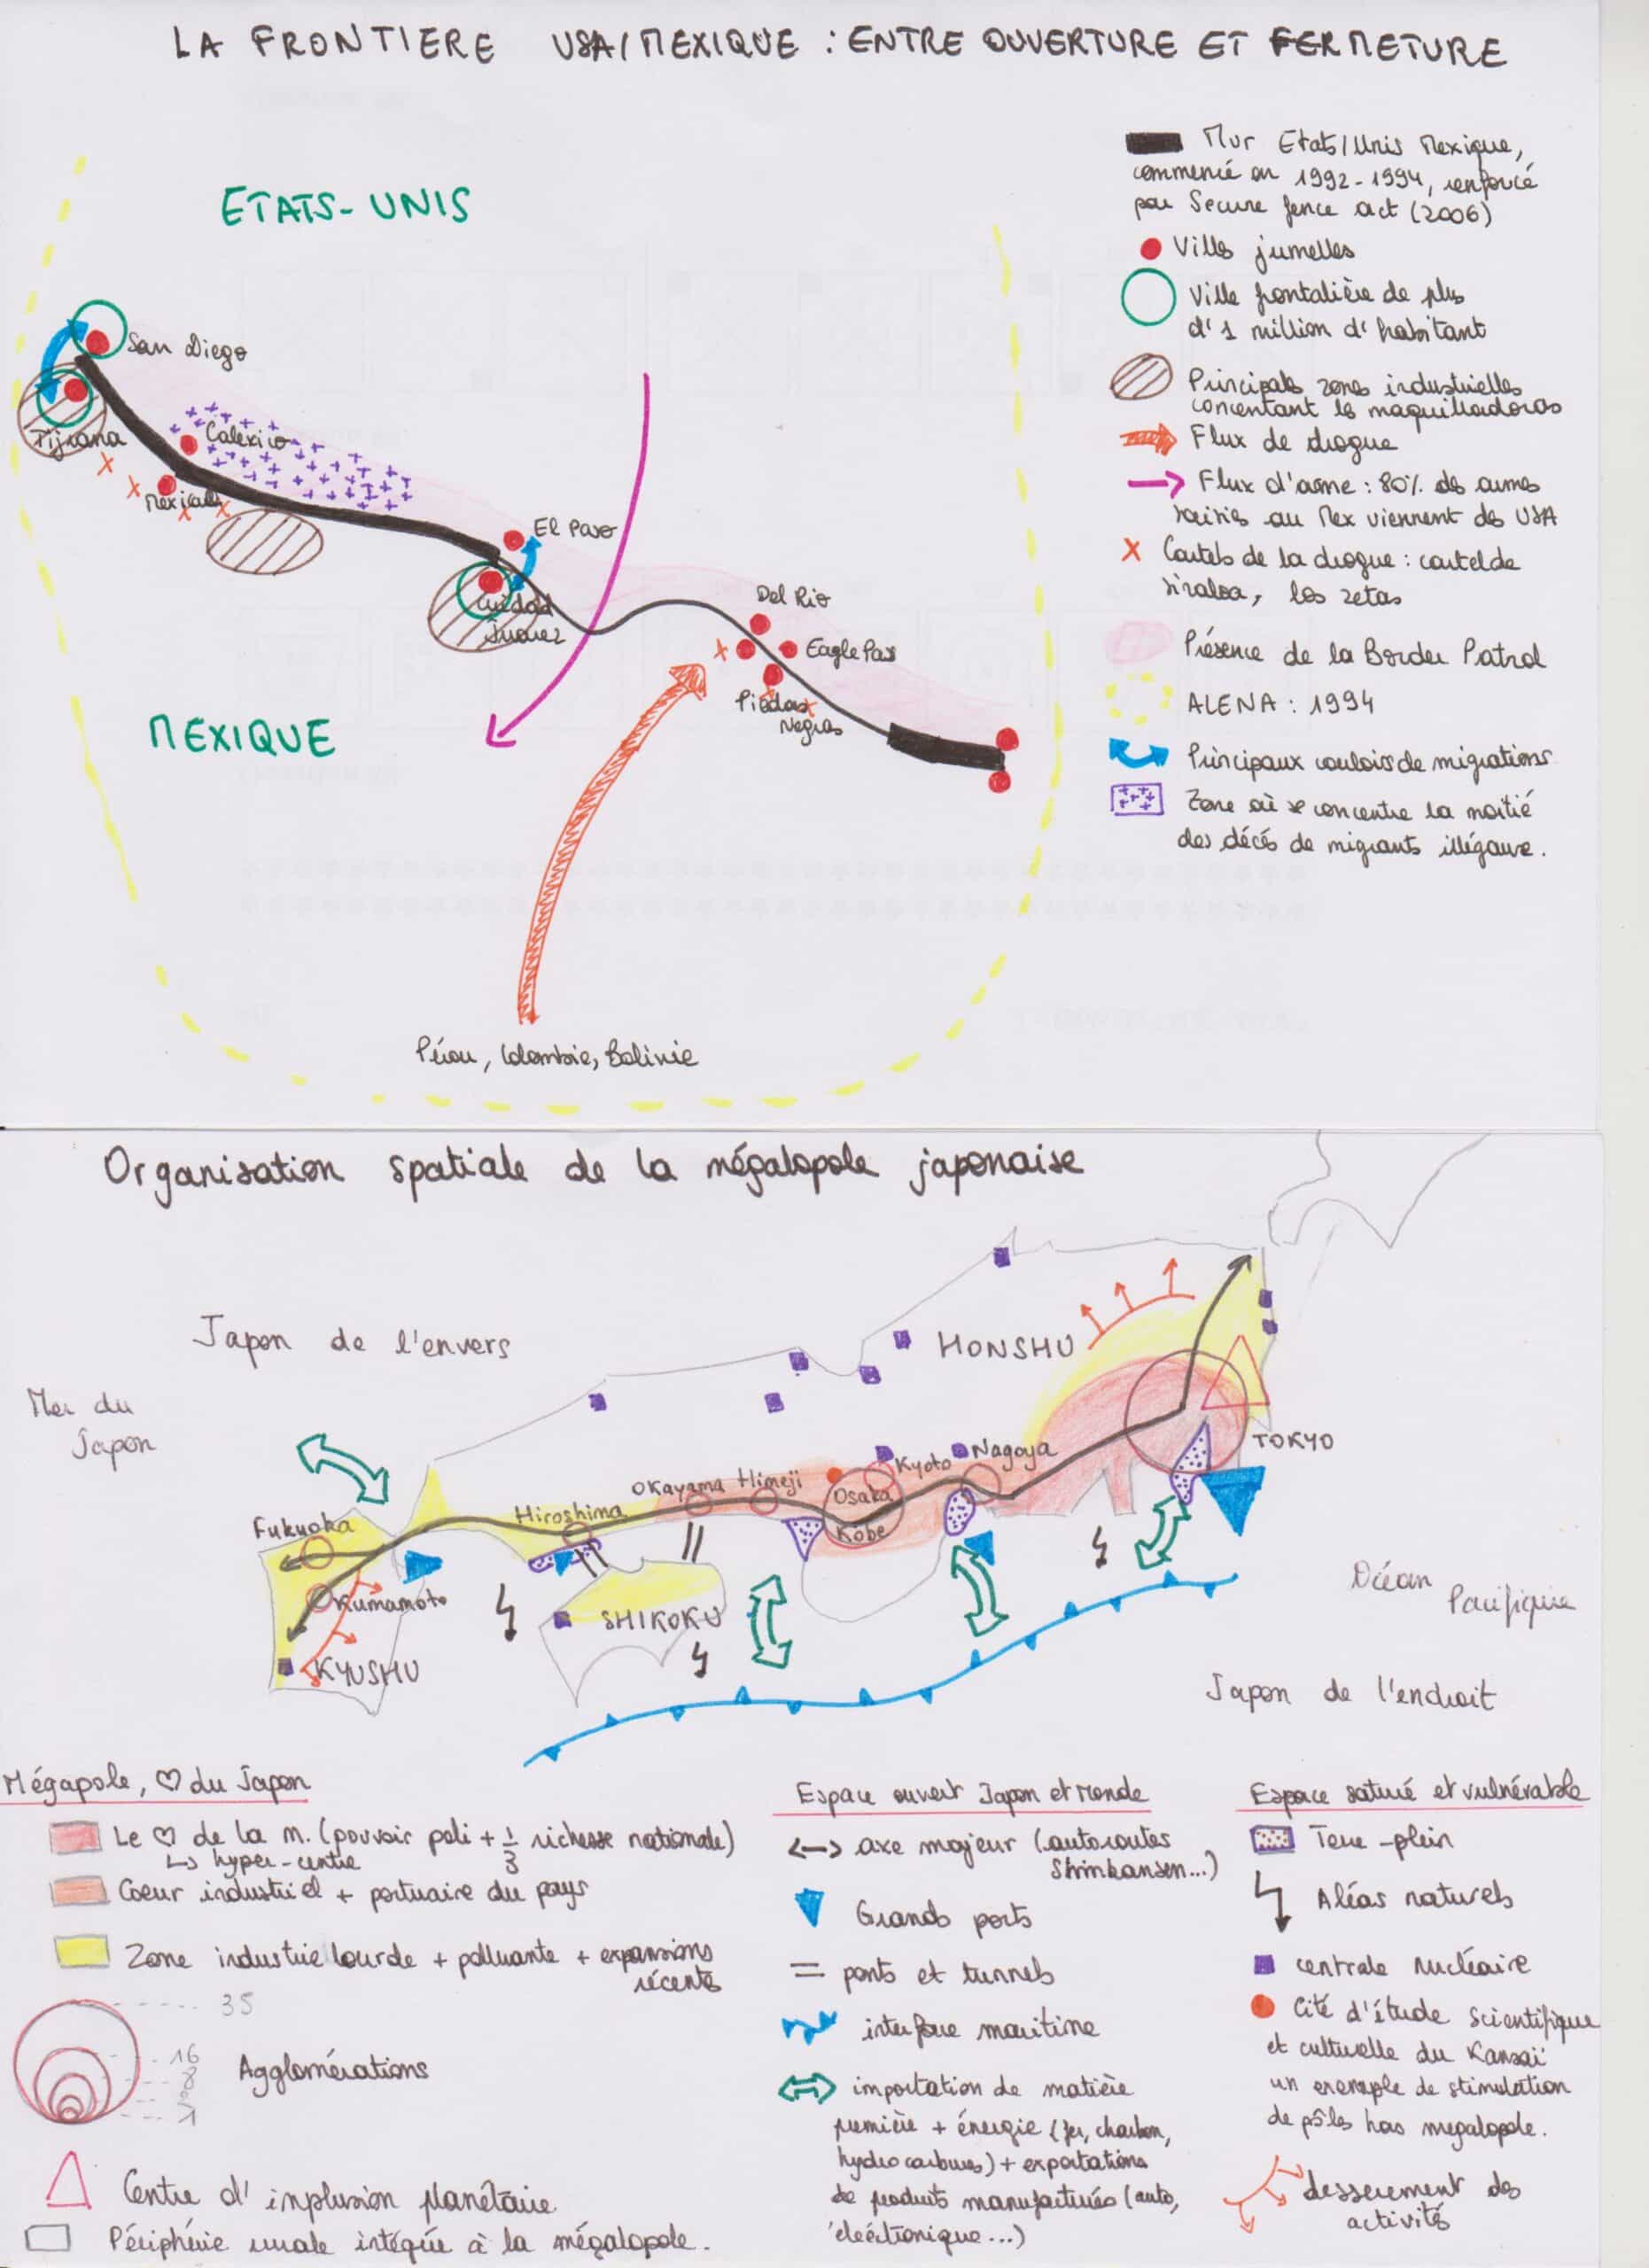 LA FRONTIERE USA/MEXIQUE : ENTRE OUVERTURE ET FERMETURE
ETATS-UNIS
San Diego
Tijuana
Calexico
Mexicali
El Paso
Ciudad
Juarez
Del Rio
Eagle Pass
Piedras
Negras
MEXIQUE
Pérou, Colombie, Bolivie
Mur Etats/Unis Mexique,
commencé en 1992-1994, renforcé
par Secure fence act (2006)
Villes jumelles
Ville frontalière de plus
d'1 million d'habitant
Principales zones industrielles
concentant les maquilladoras
Flux de drogue
Flux d'arme : 80% des armes
saisies au Mex viennent des USA
Cartels de la drogue : cartel de
sinaloa, los zetas
Présence de la Border Patrol
ALENA : 1994
Principaux couloirs de migrations
Zone où se concentre la moitié
des décés de migrants illégaux.
Organisation spatiale de la mégalopole japonaise
Japon de l'envers
Mer du
Japon
HONSHU
TOKYO
Nagoya
Kyoto
Osaka
Kobe
Himeji
Okayama
Hiroshima
Fukuoka
Kumamoto
KYUSHU
SHIKOKU
Océan
Pacifique
Japon de l'endroit
Mégapole, ♡ du Japon
Le ♡ de la m. (pouvoir poli + 1/3 richesse nationale)
↳ hyper-centre
Coeur industriel + portuaire du pays
Zone industrie lourde + polluante + expansions
récentes
35
16
8
1
Agglomérations
Centre d'inplusion planétaire
Périphérie rurale intégrée à la mégalopole.
Espace ouvert Japon et Monde
<--> axe majeur (autoroutes
Shinkansen...)
Grands ports
= ponts et tunnels
interface maritime
importation de matière
première + énergie (fer, charbon,
hydrocarbures) + exportations
de produits manufacturés (auto,
éléctionique...)
Espace saturé et vulnérable
Terre-plein
Aléas naturels
centrale nucléaire
Cité d'étude scientifique
et culturelle du Kansaï
un exemple de stimulation
de pôles hors megalopole.
desserement des
activités